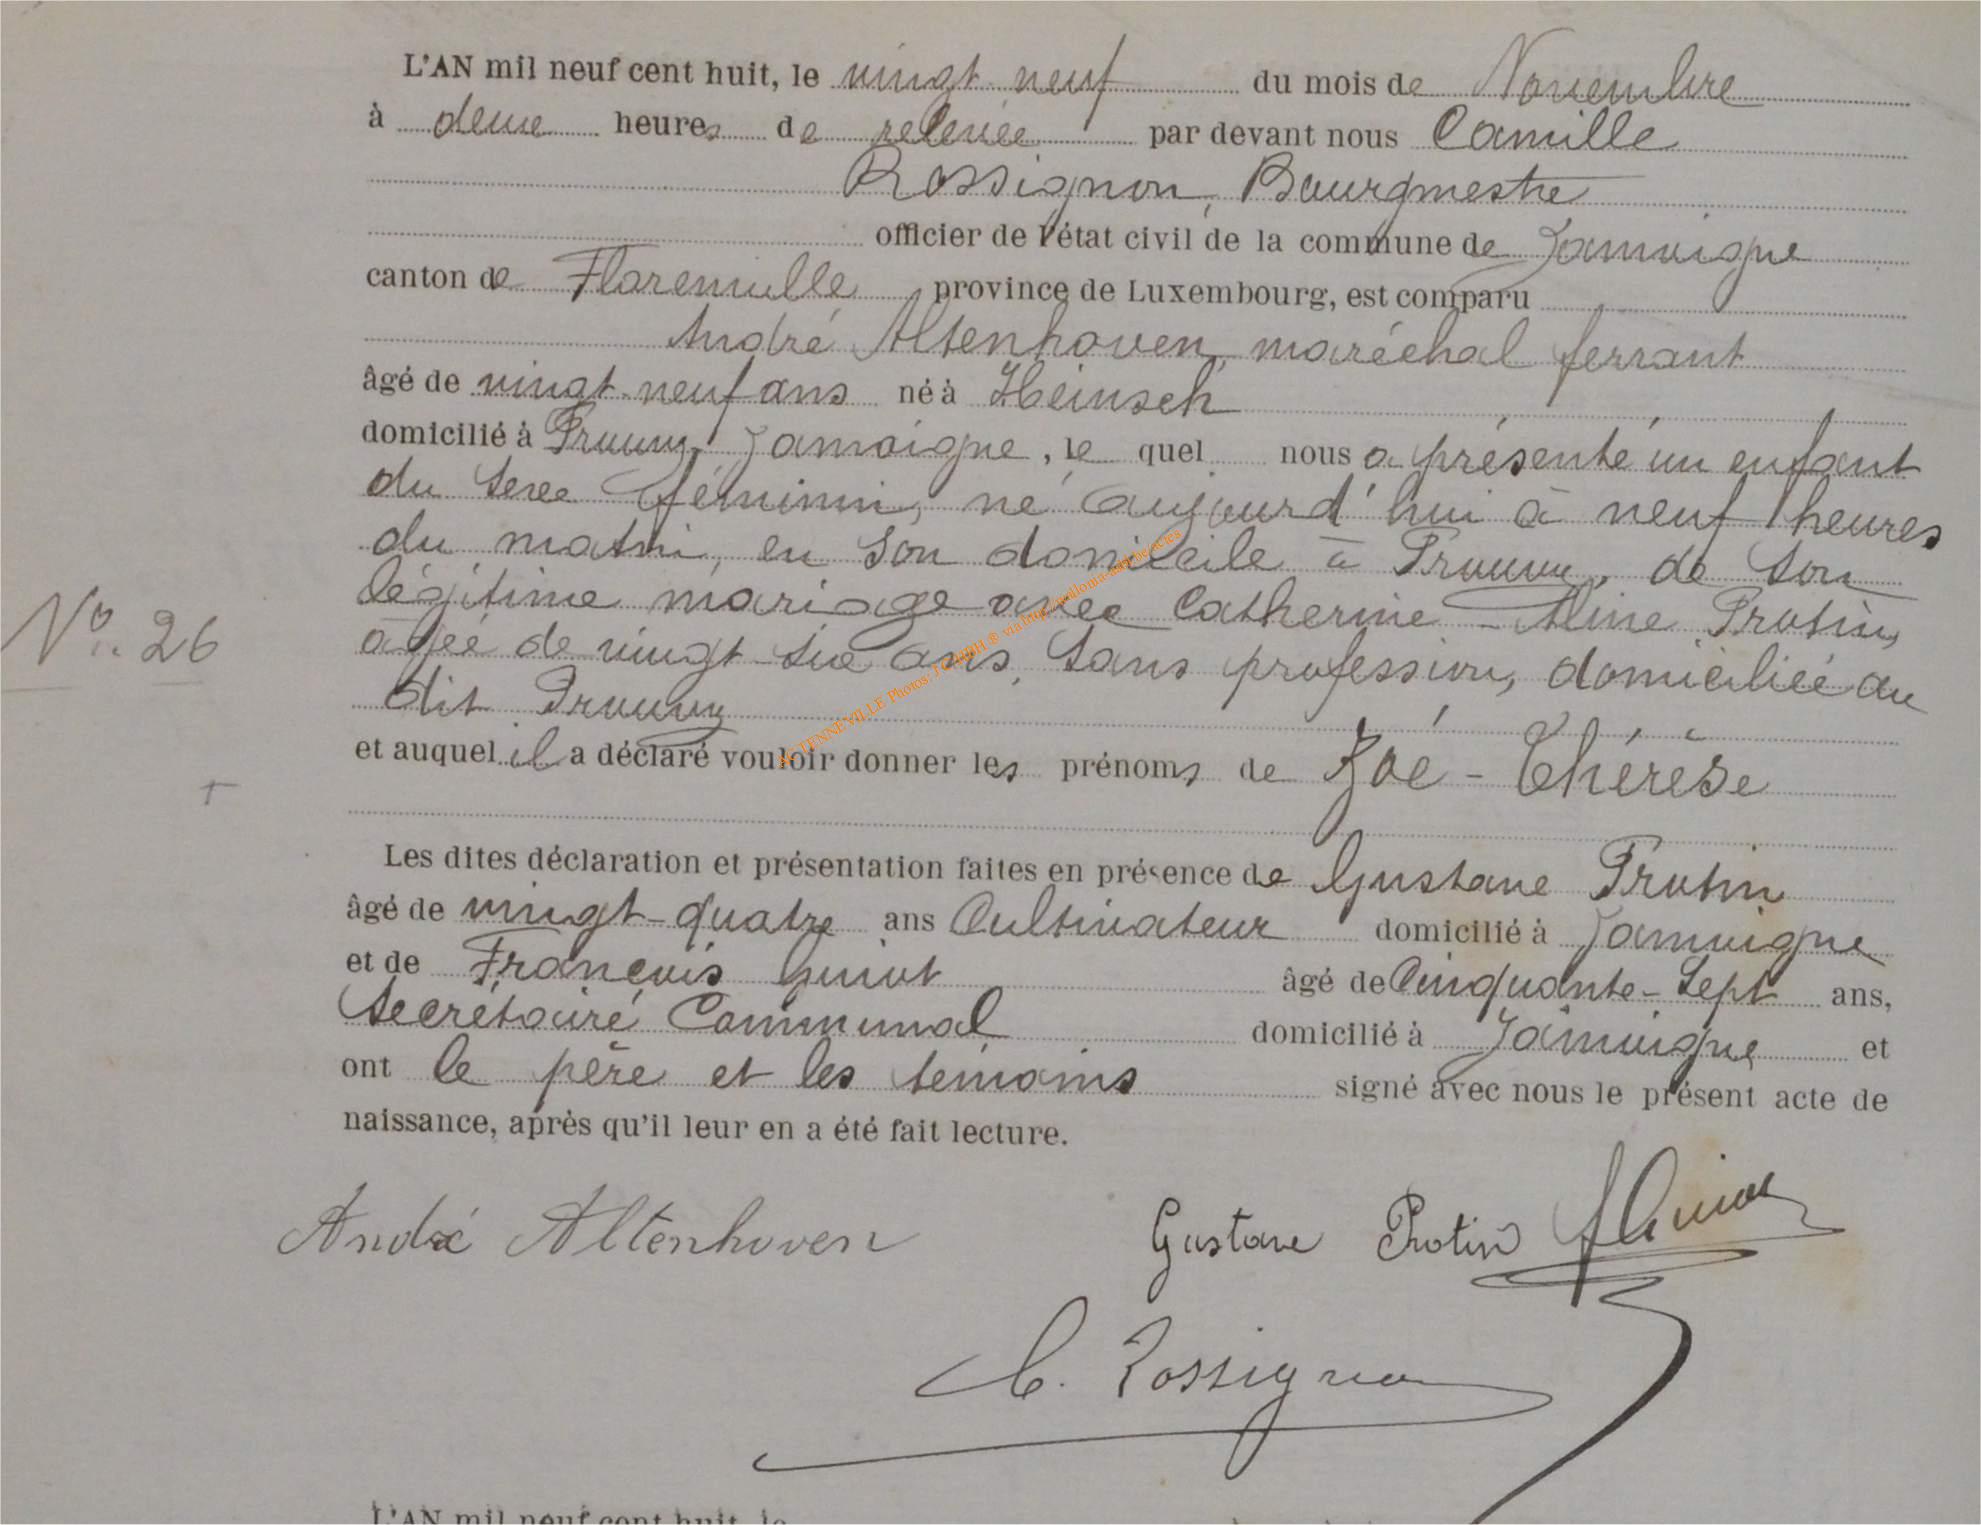 L'AN mil neuf cent huit, le vingt-neuf du mois de Novembre
à deux heures de relevée par devant nous Camille
Rossignon, Bourgmestre
officier de l'état civil de la commune de Jamoigne
canton de Florenville province de Luxembourg, est comparu
André Altenhoven, maréchal ferrant
âgé de vingt-neuf ans né à Heinsch
domicilié à Prouvy, Jamoigne, le quel nous a présenté un enfant
du sexe féminin, né aujourd'hui à neuf heures
du matin, en son domicile à Prouvy, de son
légitime mariage avec Catherine-Aline Protin,
âgée de vingt-six ans, sans profession, domiciliée au
dit Prouvy
et auquel il a déclaré vouloir donner les prénoms de Zoé-Thérèse
Les dites déclaration et présentation faites en présence de Gustave Protin
âgé de vingt-quatre ans Cultivateur domicilié à Jamoigne
et de François Guiot âgé de Cinquante-Sept ans,
Secrétaire Communal domicilié à Jamoigne et
ont le père et les témoins signé avec nous le présent acte de
naissance, après qu'il leur en a été fait lecture.
No. 26
André Altenhoven Gustave Protin
C. Rossignon
L'AN mil neuf cent huit, le